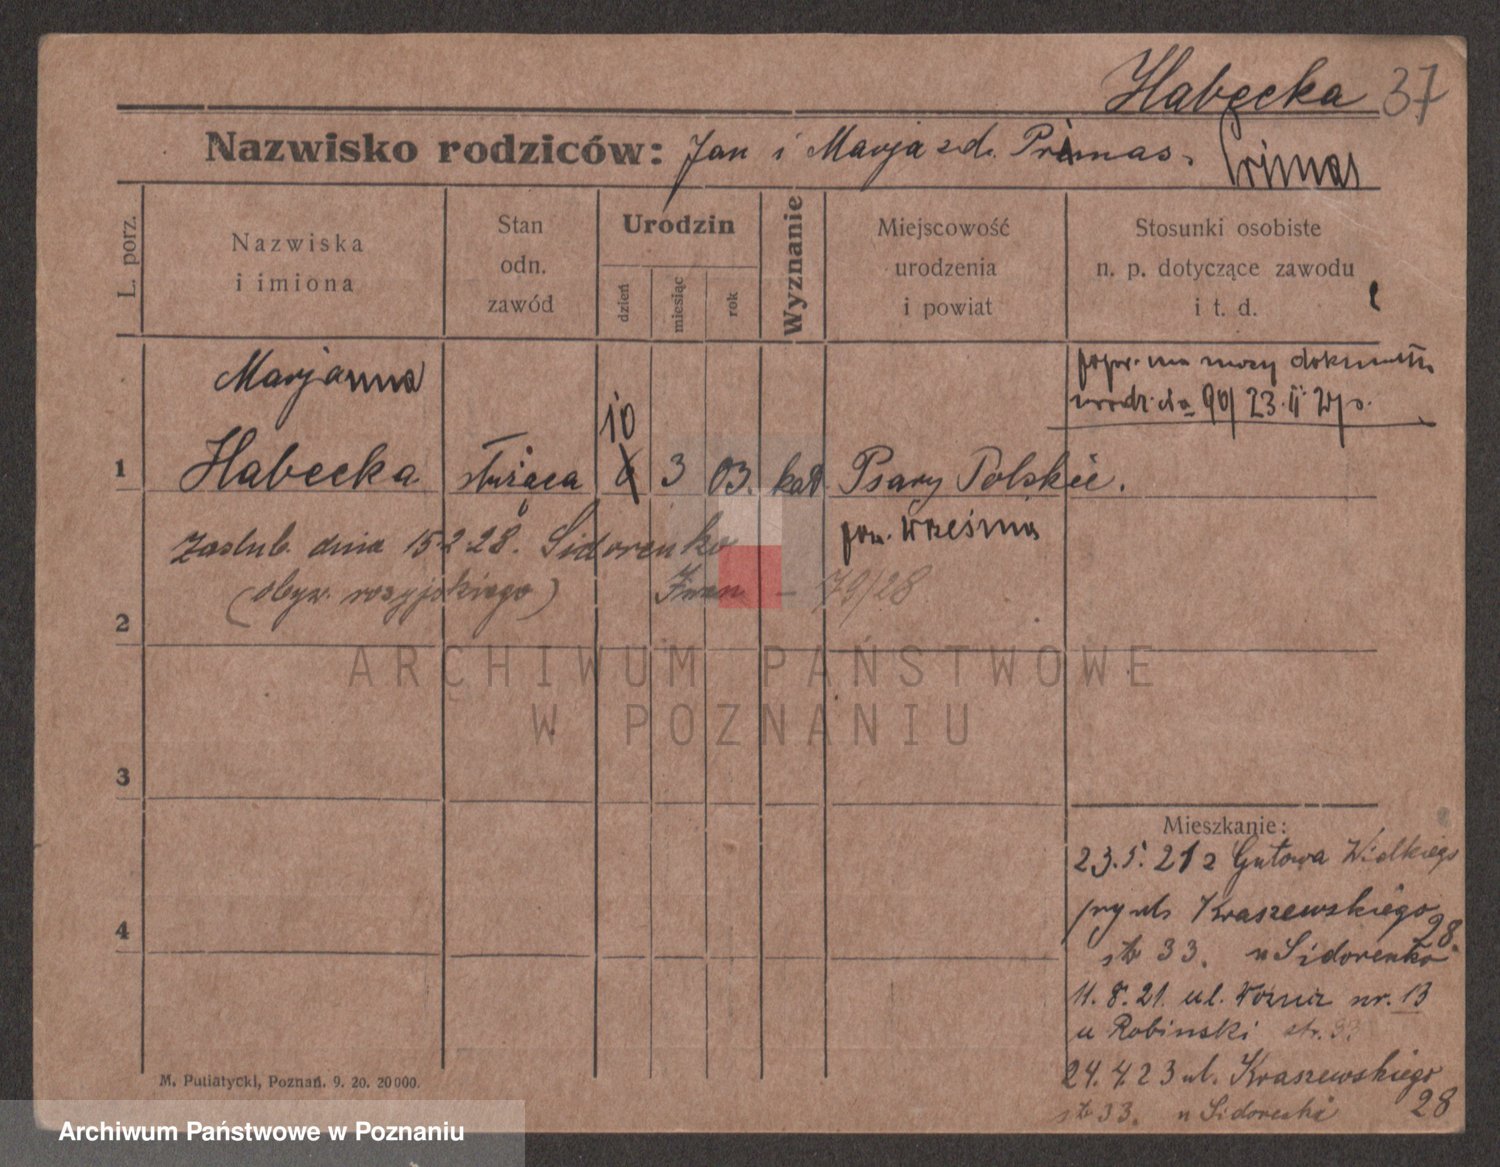 Habecka 37
Nazwisko rodziców: Jan i Marja zd. Primas. Primas
L. porz.
Nazwiska
i imiona
Stan
odn.
zawód
Urodzin
dzień
miesiąc
rok
Wyznanie
Miejscowość
urodzenia
i powiat
Stosunki osobiste
n. p. dotyczące zawodu
i t. d.
Marjanna
popr. na mocy dokumentu
urodz. 90/ 23.II
10
1 Habecka służąca 6 3 03. kat Psary Polskie.
pow. Września
Zaślub. dnia 15.2.28. Sidorenko
(obyw. rosyjskiego) Iwan – 79/28
2
ARCHIWUM PAŃSTWOWE
W POZNANIU
3
4
Mieszkanie:
23.5.21 z Gutowa Wielkiego
przy ul. Kraszewskiego 28.
str 33. u Sidorenko
11.8.21. ul. nr. 13
u Robinski str.
24.4.23 ul. Kraszewskiego 28
str 33. u
M. Putiatycki, Poznań. 9. 20. 20000.
Archiwum Państwowe w Poznaniu